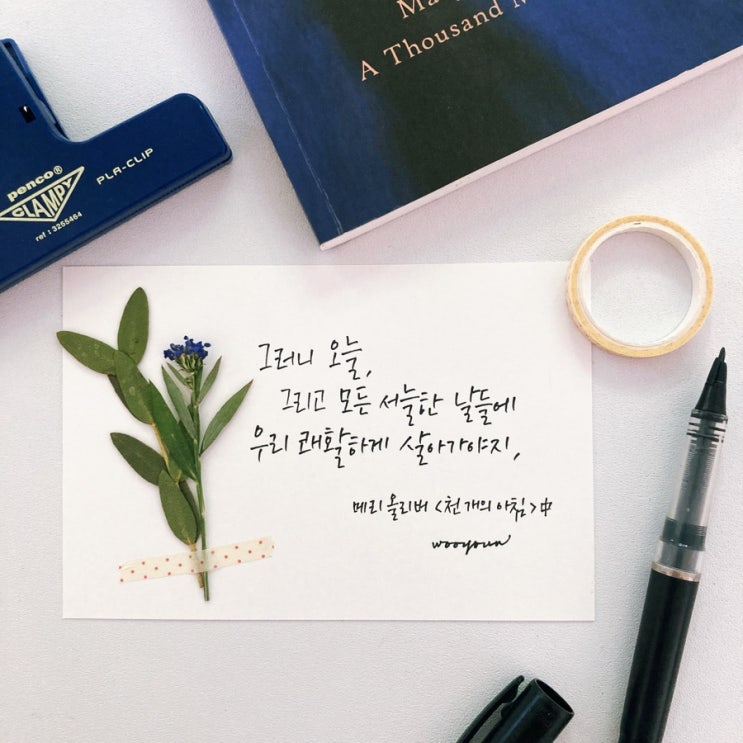 Ma
A Thousand M
PLA-CLIP
penco®
CLAMPY
ref : 3255464
그러니 오늘,
그리고 모든 서늘한 날들에
우리 쾌활하게 살아가야지,
메리 올리버 <천 개의 아침> 中
wooyoun